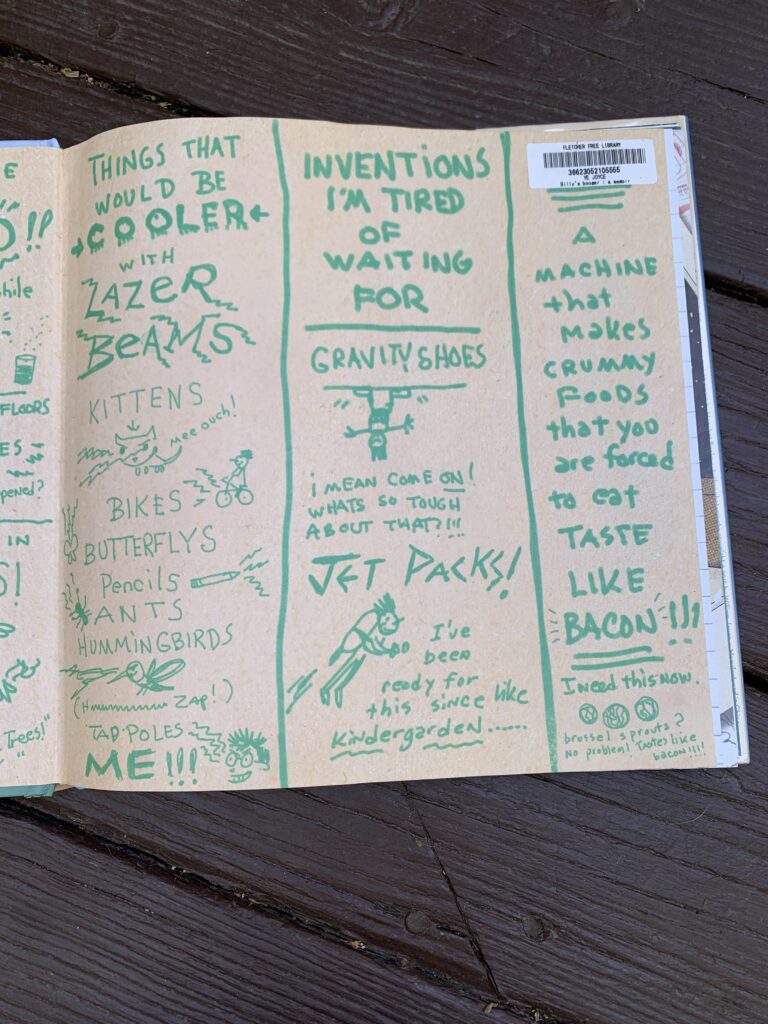 E
!!
while
FLOORS
ES
opened?
IN
S!
Trees!"
THINGS THAT
WOULD BE
COOLER
WITH
LAZER
BEAMS
KITTENS
mee ouch!
BIKES
BUTTERFLYS
Pencils
ANTS
HUMMINGBIRDS
(Hmmmmmm ZAP!)
TAD-POLES
ME!!!
INVENTIONS
I'M TIRED
OF
WAITING
FOR
GRAVITY SHOES
I MEAN COME ON!
WHATS SO TOUGH
ABOUT THAT?!!!
JET PACKS!
I've
been
ready for
this since like
Kindergarden......
FLETCHER FREE LIBRARY
36623052105555
YE JOYCE
Billy's booger : a memoir
A
MACHINE
that
makes
CRUMMY
FOODS
that you
are forced
to eat
TASTE
LIKE
BACON!!!
I need this now.
brussel sprouts?
No problem! Tastes like
bacon!!!!